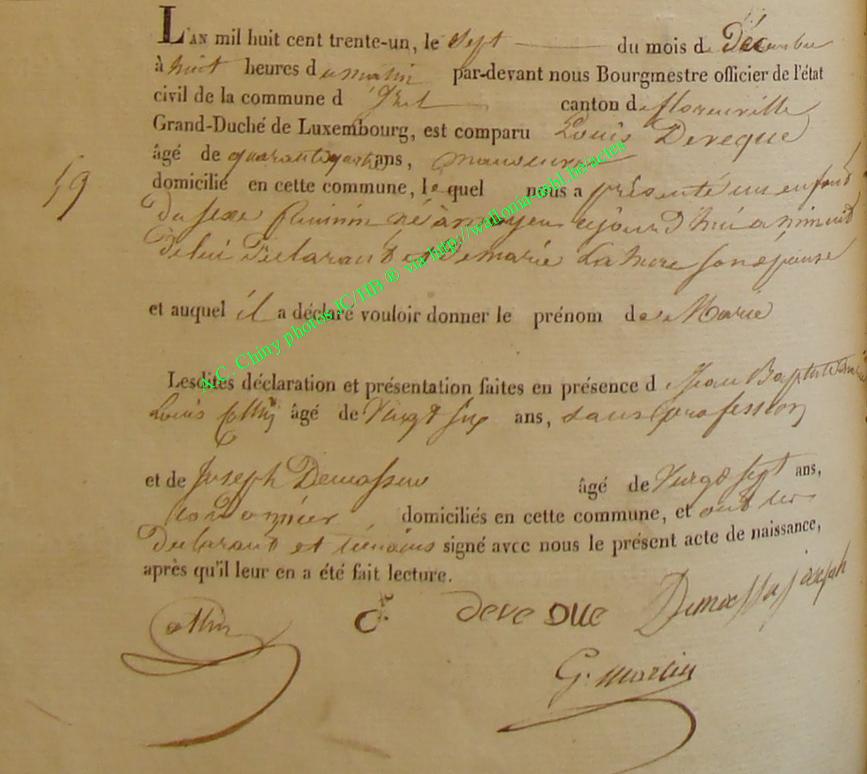 L'AN mil huit cent trente-un, le Sept du mois de Décembre
à huit heures du matin par-devant nous Bourgmestre officier de l'état
civil de la commune d' canton de florenville
Grand-Duché de Luxembourg, est comparu Louis Deveque
âgé de quarante ans, manoeuvre
59
domicilié en cette commune, lequel nous a présenté un enfant
du sexe féminin né à moyen aujourd'hui à minuit
de lui Déclarant et de marie Lahure son épouse
et auquel il a déclaré vouloir donner le prénom de Marie
Lesdites déclaration et présentation faites en présence de Jean Baptiste
Louis Collin âgé de Vingt six ans, sans profession
et de Joseph Demasseu âgé de Vingt sept ans,
cordonnier domiciliés en cette commune, et ont les
Déclarant et témoins signé avec nous le présent acte de naissance,
après qu'il leur en a été fait lecture.
Collin deve Due joseph
G. Martin
A.C. Chiny photos JC/HB ® via http://wallonia-asbl.be/actes